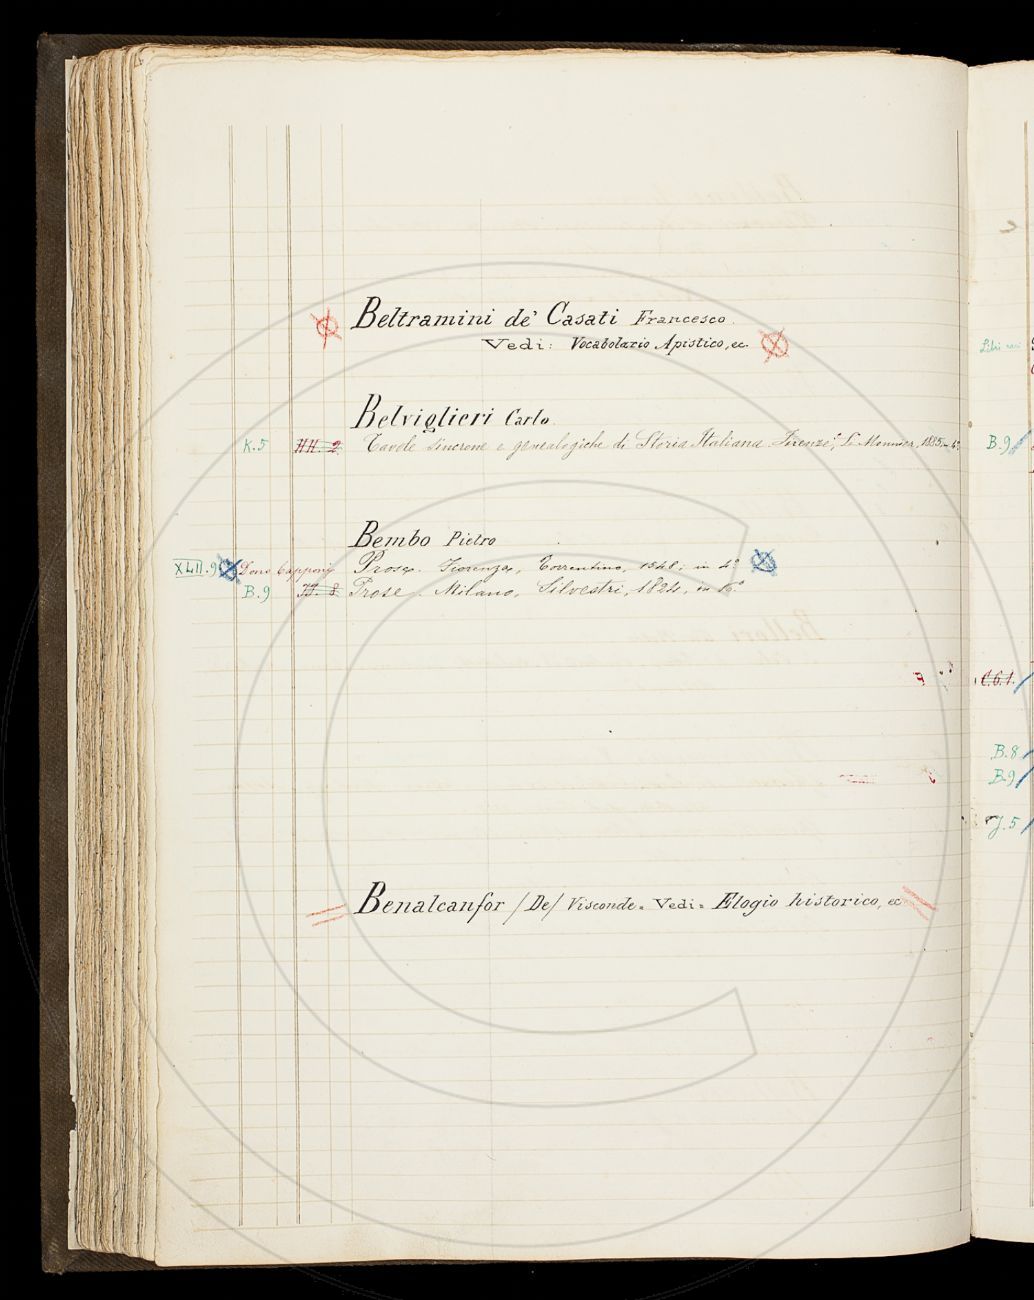 Beltramini de' Casati Francesco.
Vedi: Vocabolario Apistico, ec.
Belviglieri Carlo
K.5 HH. 2. Tavole sincrone e genealogiche di Storia Italiana. Firenze, Le Monnier, 1885, 4°.
Bembo Pietro
XLII.9 Dono Capponi Prose. Fiorenza, Torrentino, 1548; in 4°
B.9 Prose. Milano, Silvestri, 1824, in
Benalcanfor /De/ Visconde = Vedi = Elogio historico, ec
Libri rari
B.9
C.6.1.
B.8
B.9
J.5